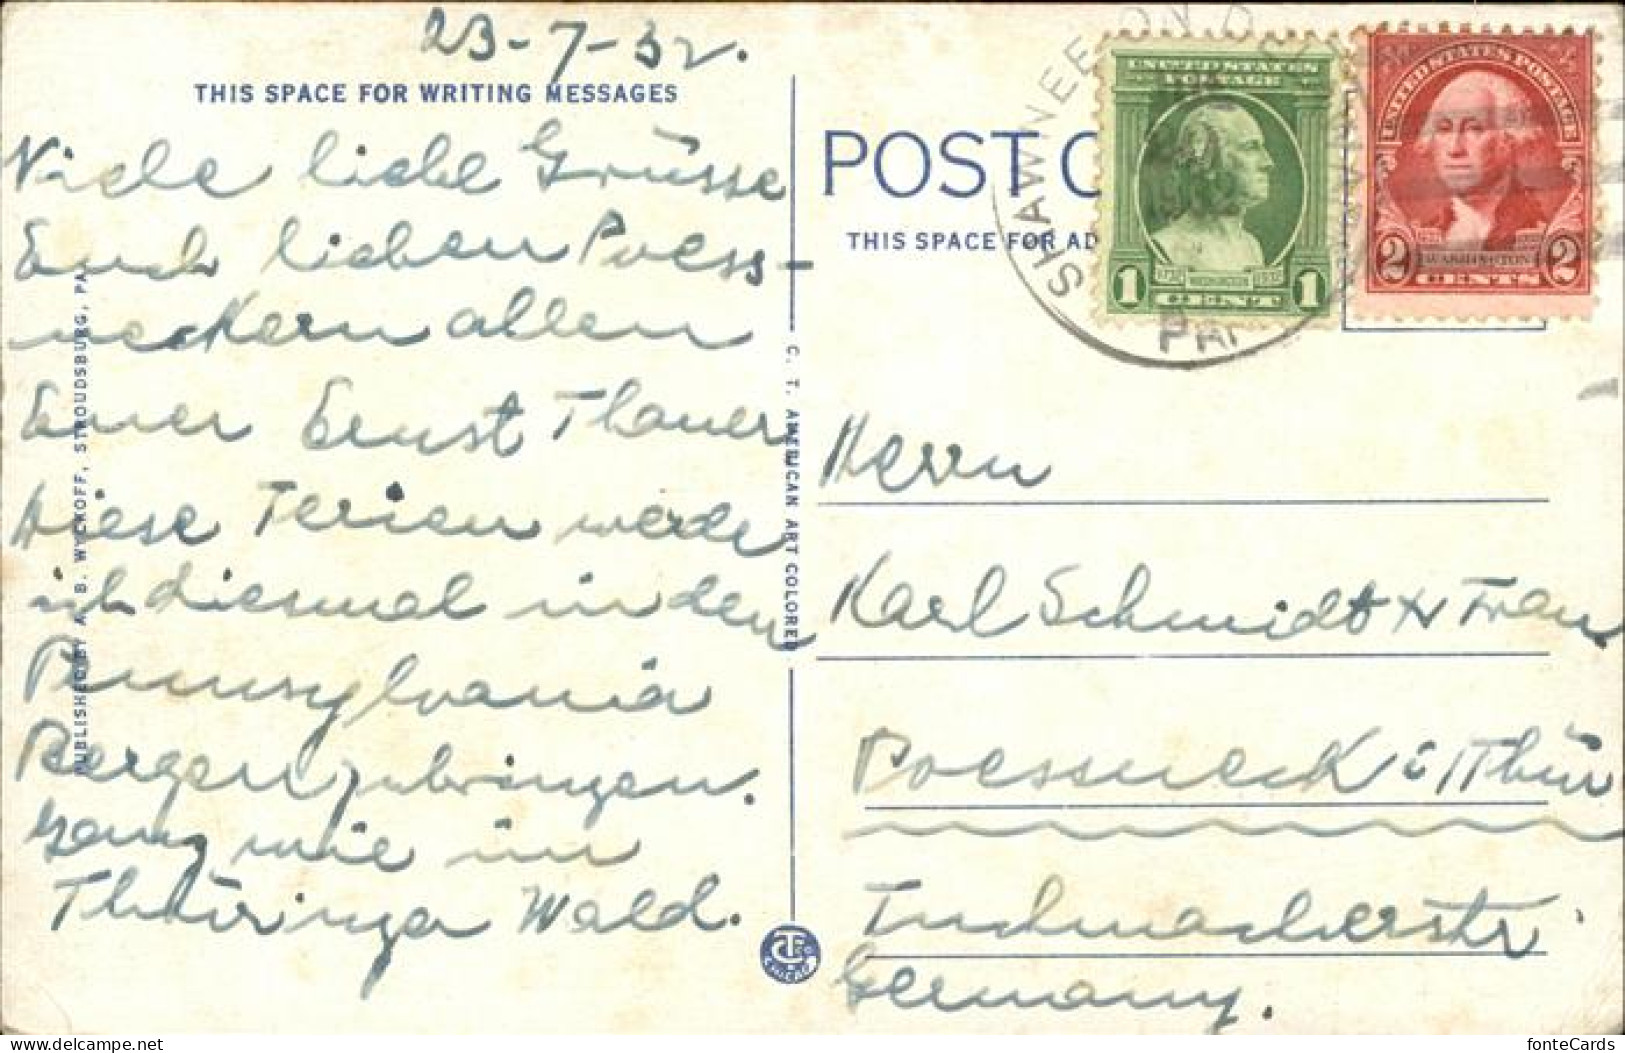 23-7-32.
THIS SPACE FOR WRITING MESSAGES
Viele liebe Grüsse
Euch lieben Poess-
neckern allen
Euer Ernst Thauer
Diese Ferien werde
ich diesmal in den
Pennsylvania
Bergen zubringen.
Ganz wie im
Thüringer Wald.
PUBLISHED BY A. B. WYCKOFF, STROUDSBURG, PA.
C. T. AMERICAN ART COLORED
POST C
THIS SPACE FOR AD
SHAWNEE ON D
PA
UNITED STATES
POSTAGE
1732 WASHINGTON 1932
1 CENT 1
UNITED STATES POSTAGE
2 WASHINGTON 2
CENTS
Herrn
Karl Schmidt & Frau
Poessneck i/Thür
Tuchmacherstr.
Germany.
delcampe.net
fonteCards